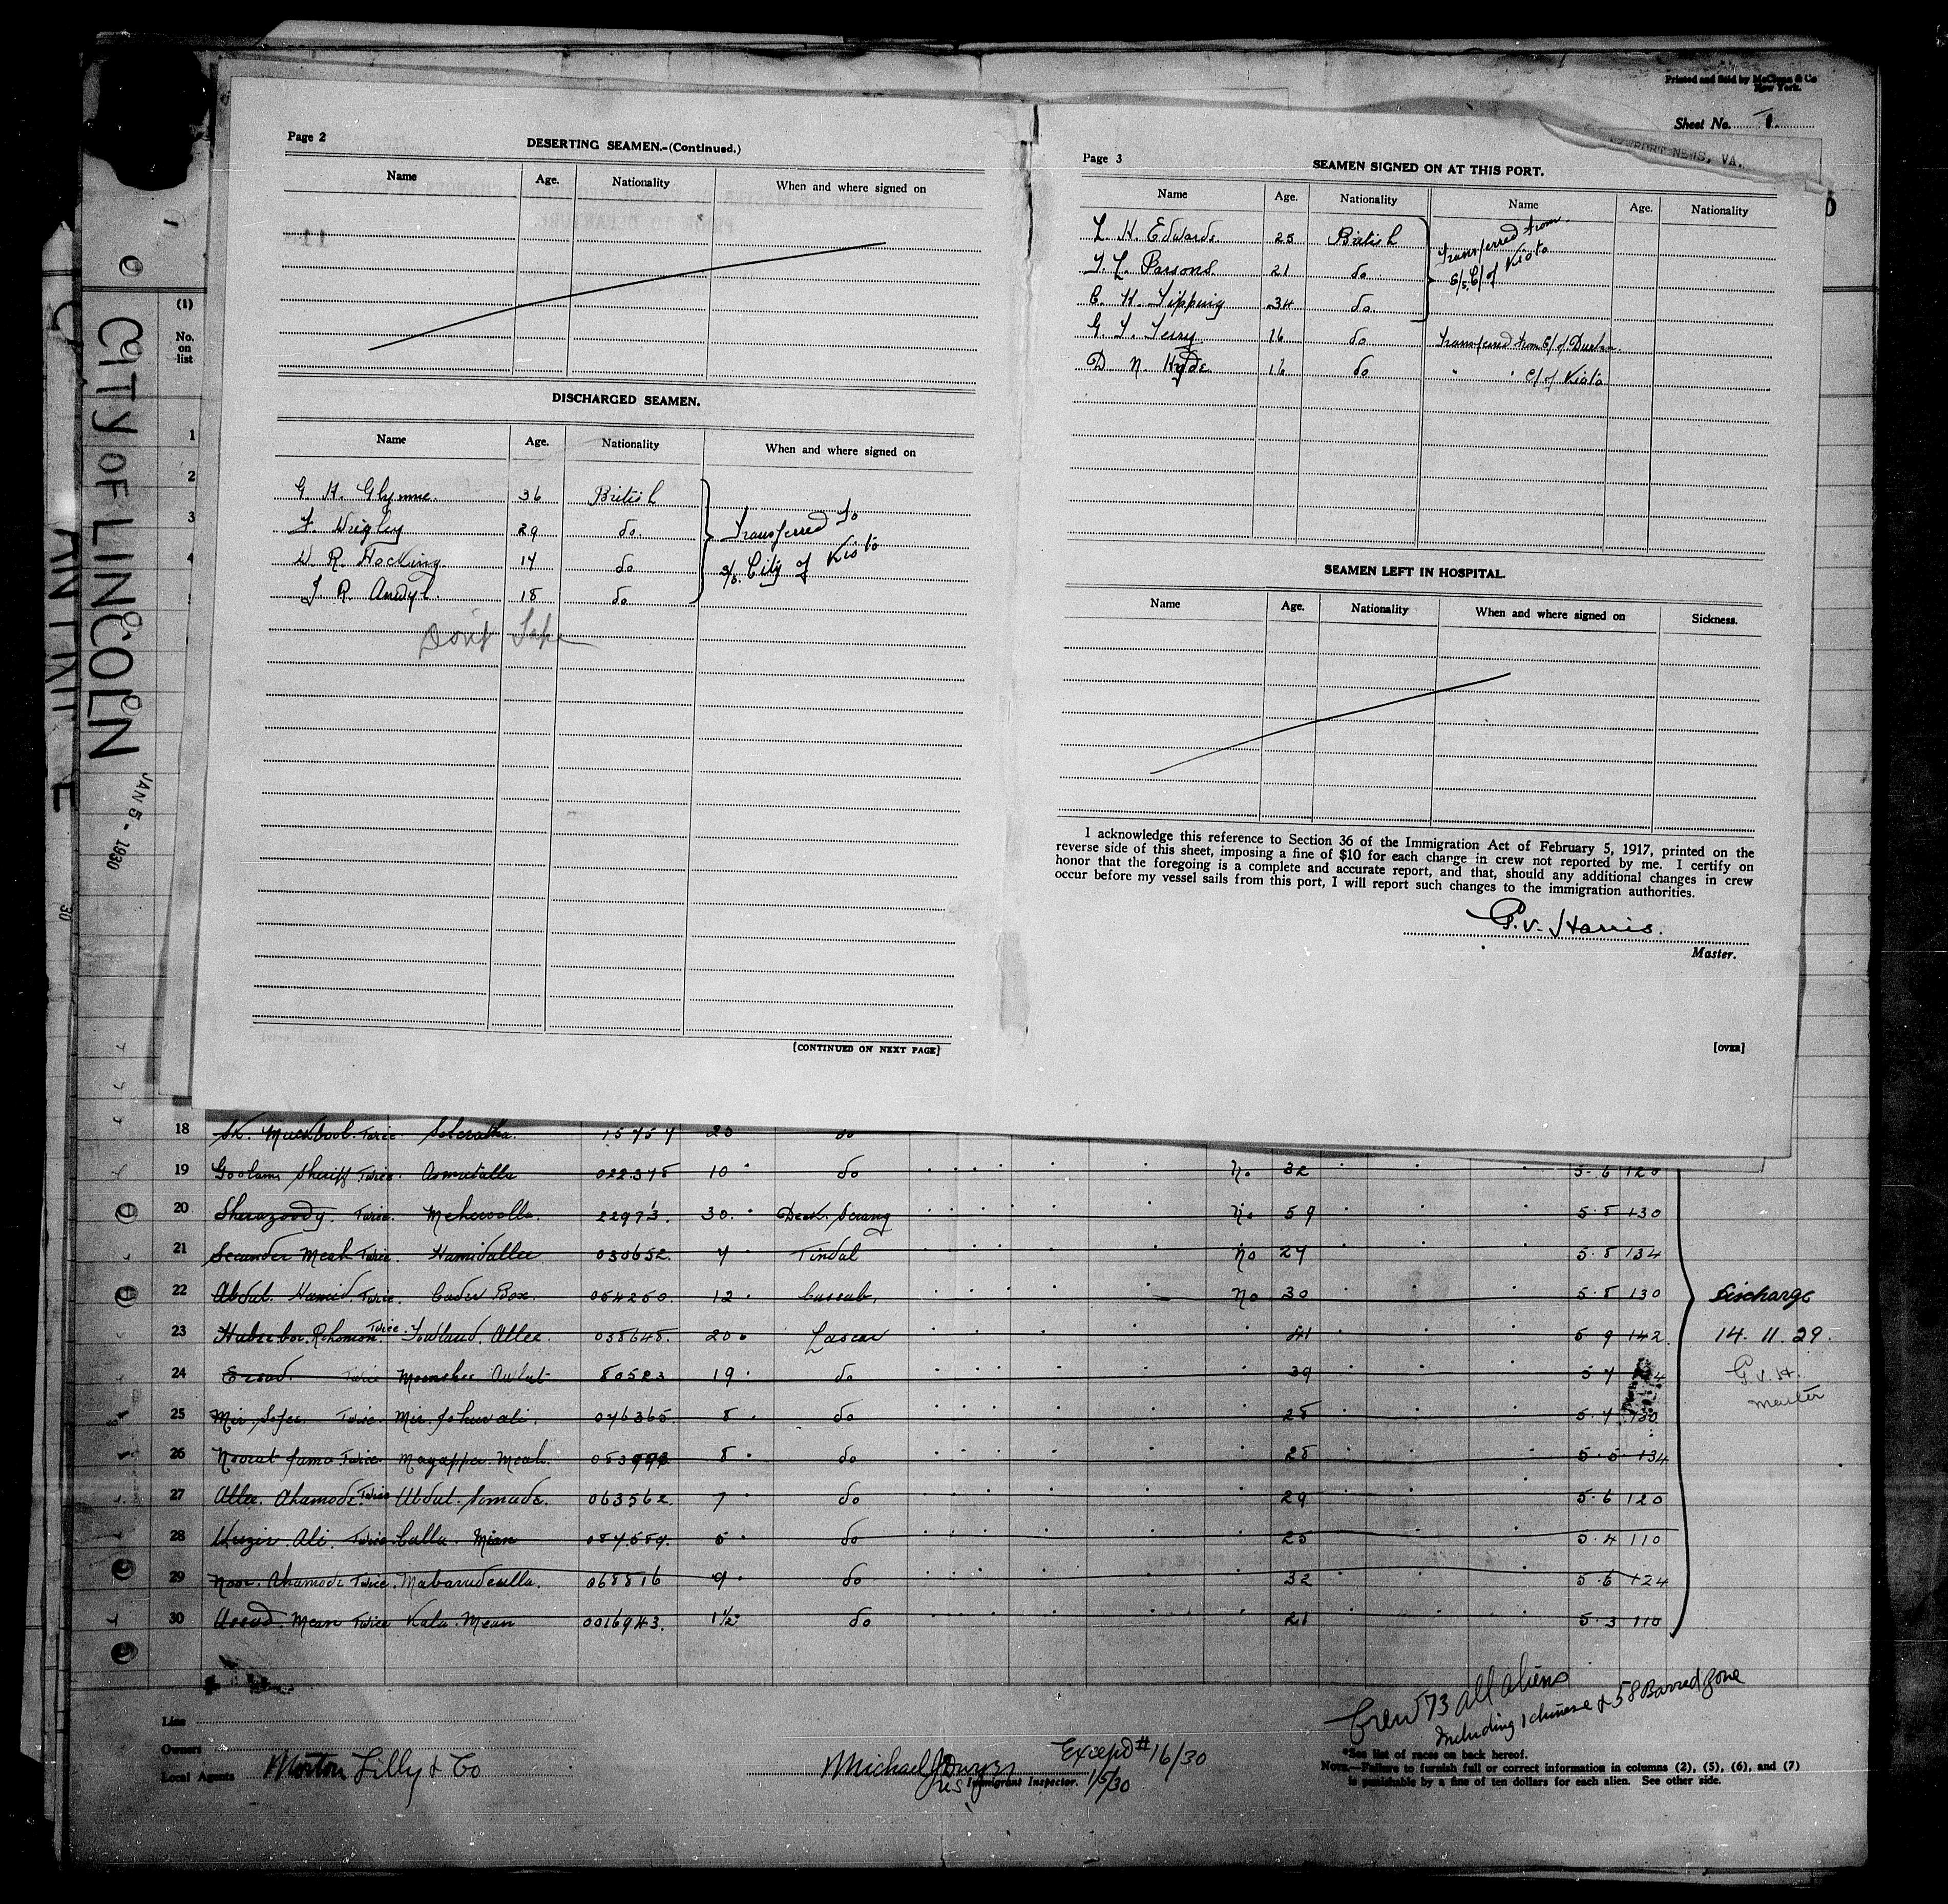 Printed and Sold by McClunn & Co
New York.
Sheet No. 1
NEWPORT NEWS, VA.
CITY OF LINCOLN
JAN 5 - 1930
(1)
No.
on
list
1
2
3
4
Page 2
DESERTING SEAMEN.-(Continued.)
Name Age. Nationality When and where signed on
DISCHARGED SEAMEN.
Name Age. Nationality When and where signed on
G. H. Glynne. 36 British
F. Wrigley 29 do Transferred to
W. R. Hocking 17 do s/s. City of Kioto
J. R. 18 do
Don't
[CONTINUED ON NEXT PAGE]
Page 3
SEAMEN SIGNED ON AT THIS PORT.
Name Age. Nationality Name Age. Nationality
L. H. Edwards 25 British Transferred from
Parsons 21 do S/s. C/ of Kioto
C. H. Tipping 34 do
G. T. Terry 16 do Transferred from C/ of Durban
D. N. Hyde 16 do " " C/ of Kioto
SEAMEN LEFT IN HOSPITAL.
Name Age. Nationality When and where signed on Sickness.
I acknowledge this reference to Section 36 of the Immigration Act of February 5, 1917, printed on the
reverse side of this sheet, imposing a fine of $10 for each change in crew not reported by me. I certify on
honor that the foregoing is a complete and accurate report, and that, should any additional changes in crew
occur before my vessel sails from this port, I will report such changes to the immigration authorities.
G. V. Harris.
Master.
[OVER]
18 Sk. Muckbool. Twice 15757 20 do
19 Goolam Sheriff Twice. Asmutalla 022378 10 do No 32 5 6 120
20 Sherazoody. Twice. Meherolla. 22973. 30. Deck Serang No 59 5 8 130
21 Secunder Meah Twice. Hamidallee 030652. 7 Tindal No 27 5 8 134
22 Abdul Hamid. Twice. Cader Box. 054250. 12 Cassab. No 30 5 8 130 Discharge
23 Twice. Allee. 038648. 20 Lascar 41 5 9 142 14. 11. 29.
24 Twice Moonshee 80523 19 do 39 5 7 G. V. H.
25 Mir Twice. Mir 046365. 8 do 28 5 7 130 Master
26 Twice Meah. 8 do 28 5 5 134
27 Allee. Ahamode. Twice Abdul. Somade. 063562. 7 do 29 5 6 120
28 Wuzir Ali. Twice. Calla. Mian 087589. 5 do 25 5 4 110
29 Noor. Ahamode Twice. 068816 9 do 32 5 6 124
30 Assad. Mean Twice Kala. Mean 0016943. 1½ do 21 5 3 110
Line
Owners
Local Agents Morton Lilly & Co
Michael J Dwyer
US Immigrant Inspector. 1/5/30
#16/30
Crew 73 all aliens
Including 1 chinese & 58 Barred zone
*See list of races on back hereof.
NOTE.—Failure to furnish full or correct information in columns (2), (5), (6), and (7)
is punishable by a fine of ten dollars for each alien. See other side.